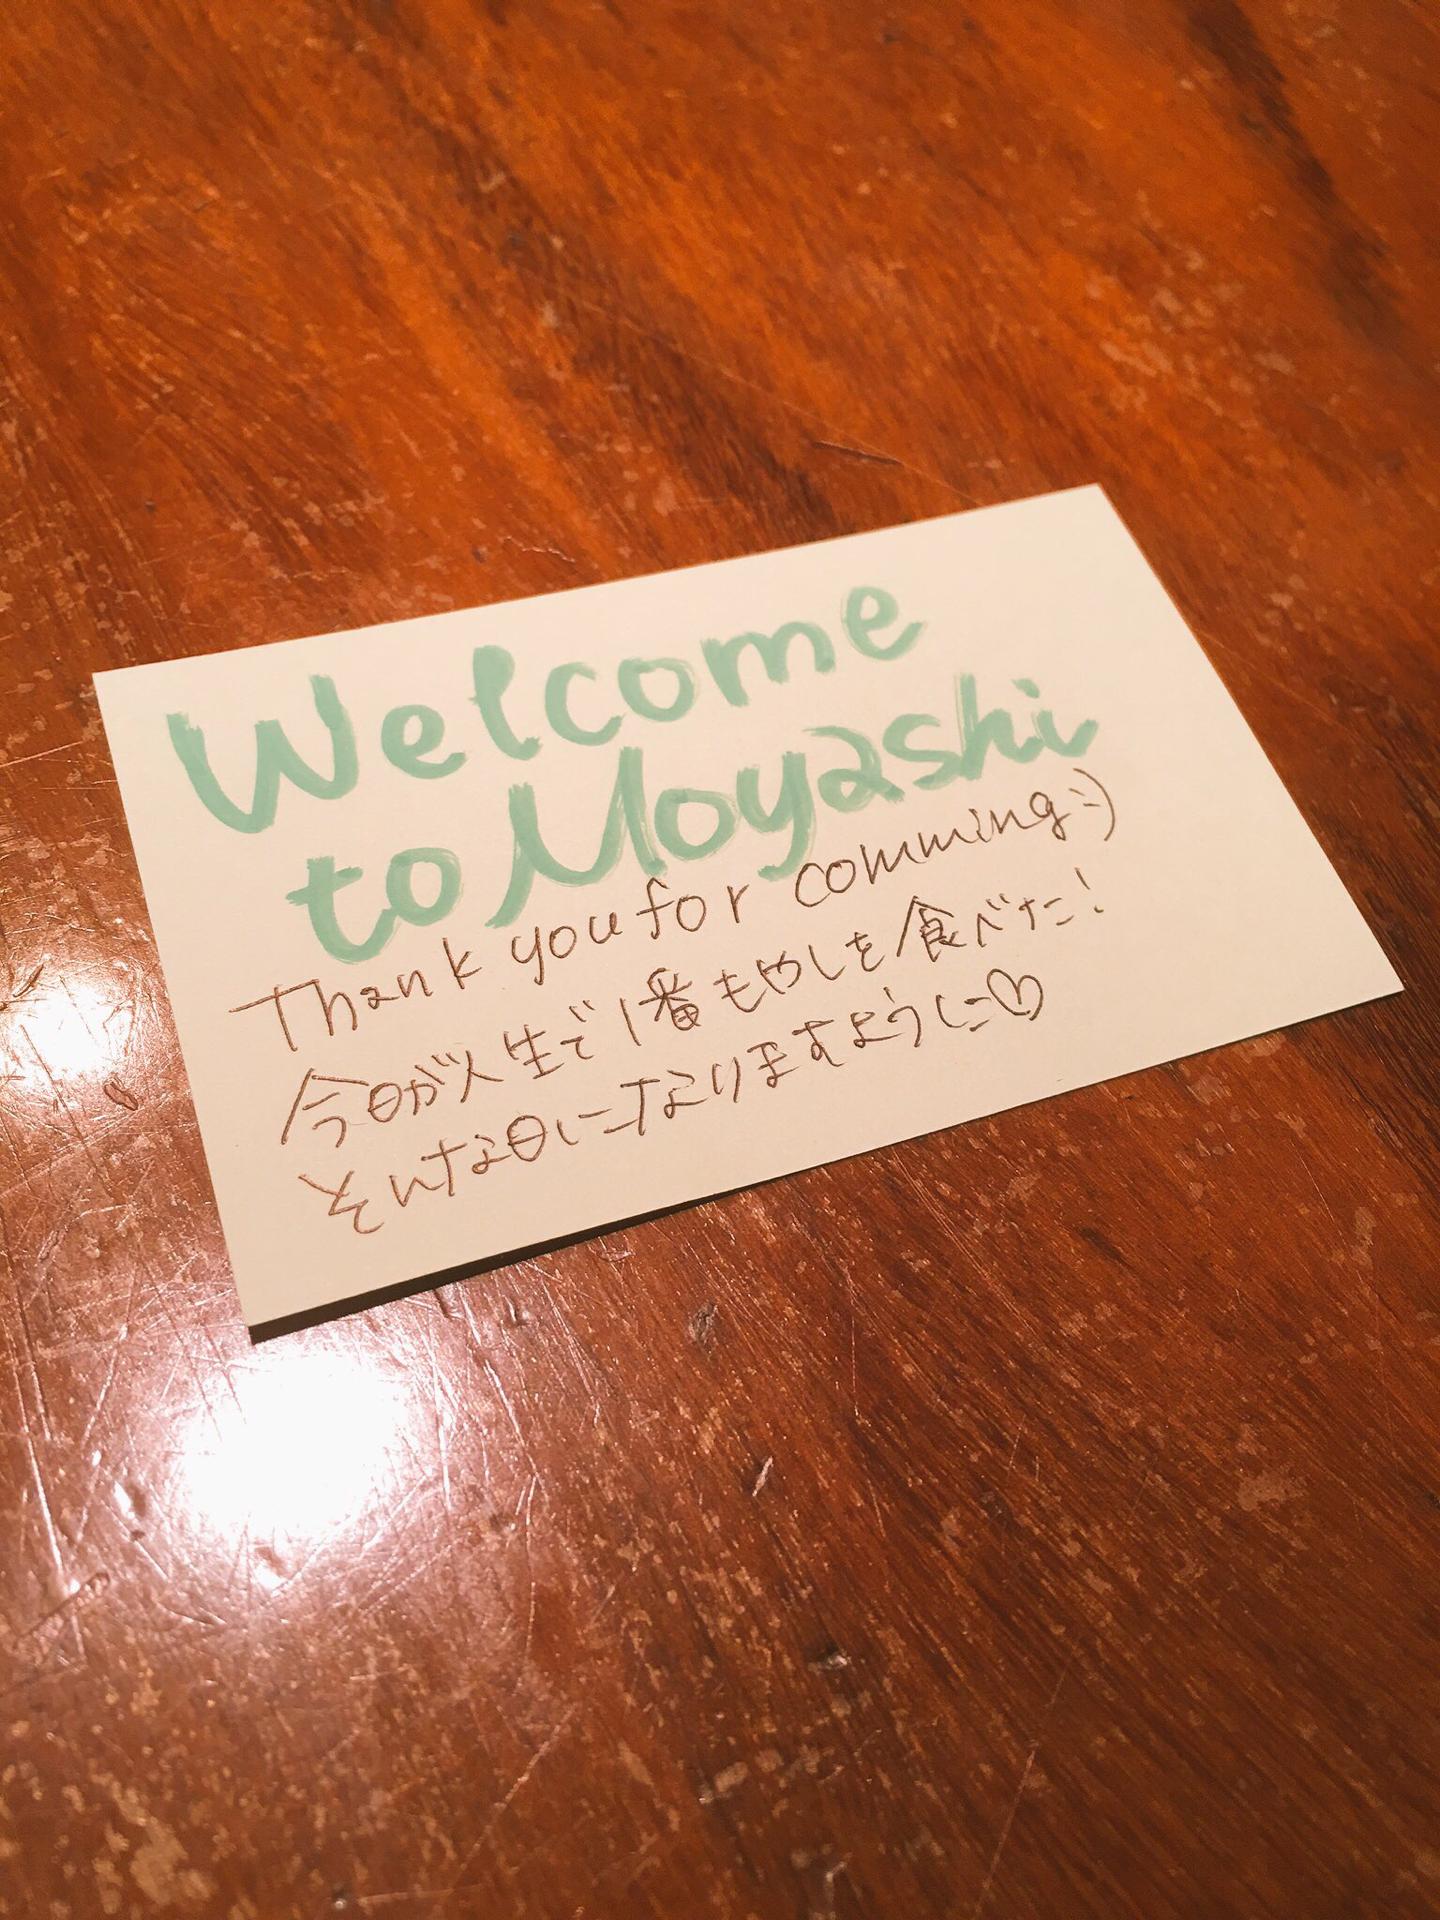 Welcome
to Moyashi
Thank you for comming :)
今日が人生で1番もやしを食べた!
そんな日になりますように♡